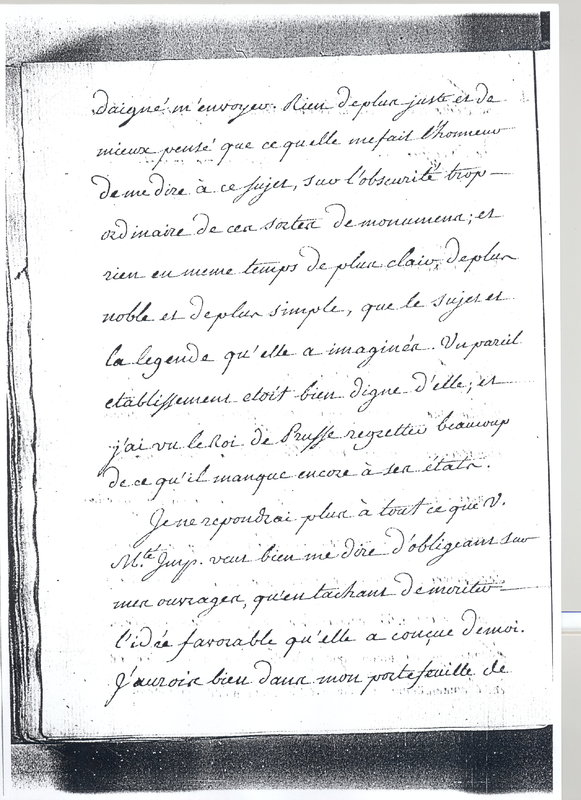 daigné m'envoyer. Rien de plus juste et de
mieux pensé que ce quelle me fait l'honneur
de me dire à ce sujet, sur l'obscurité trop
ordinaire de ces sortes de monumens; et
rien en meme temps de plus clair, de plus
noble et de plus simple, que le sujet et
la legende qu'elle a imaginés. Un pareil
etablissement etoit bien digne d'elle; et
j'ai vu le Roi de Prusse regretter beaucoup
de ce qu'il manque encore à ses états.
Je ne repondrai plus à tout ce que V.
M.té Imp. veut bien me dire d'obligeant sur
mes ouvrages, qu'en tachant de meriter
l'idée favorable qu'elle a conçue de moi.
J'aurois bien dans mon portefeuille de